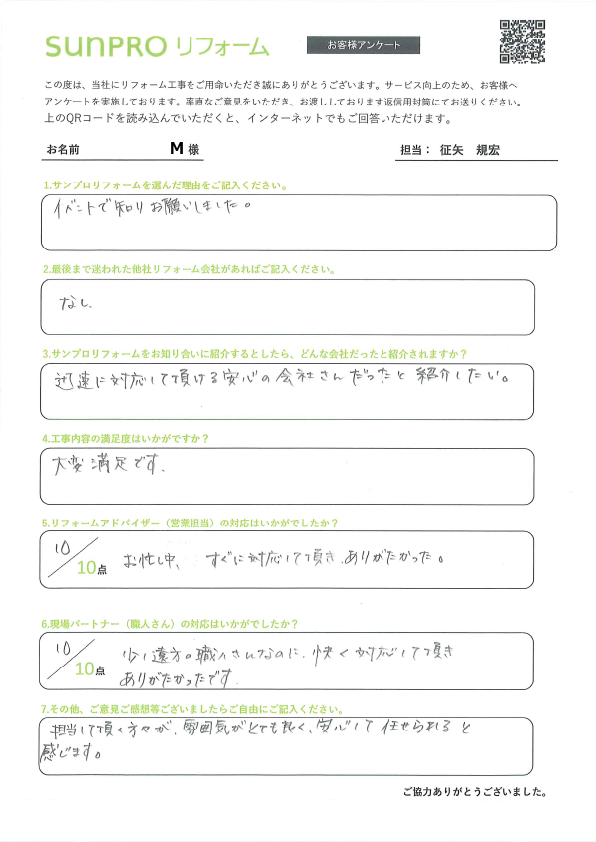 SUNPRO リフォーム
お客様アンケート
この度は、当社にリフォーム工事をご用命いただき誠にありがとうございます。サービス向上のため、お客様へ
アンケートを実施しております。率直なご意見をいただき、お渡ししております返信用封筒にてお送りください。
上のQRコードを読み込んでいただくと、インターネットでもご回答いただけます。
お名前 M 様
担当： 征矢 規宏
1.サンプロリフォームを選んだ理由をご記入ください。
イベントで知りお願いしました。
2.最後まで迷われた他社リフォーム会社があればご記入ください。
なし
3.サンプロリフォームをお知り合いに紹介するとしたら、どんな会社だったと紹介されますか？
迅速に対応して頂ける安心の会社さんだったと紹介したい。
4.工事内容の満足度はいかがですか？
大変満足です。
5.リフォームアドバイザー（営業担当）の対応はいかがでしたか？
10／10点 お忙し中、すぐに対応して頂き、ありがたかった。
6.現場パートナー（職人さん）の対応はいかがでしたか？
10／10点 少し遠方の職人さんなのに、快く対応して頂き
ありがたかったです。
7.その他、ご意見ご感想等ございましたらご自由にご記入ください。
担当して頂く方々が、雰囲気がとても良く、安心して任せられると
感じます。
ご協力ありがとうございました。